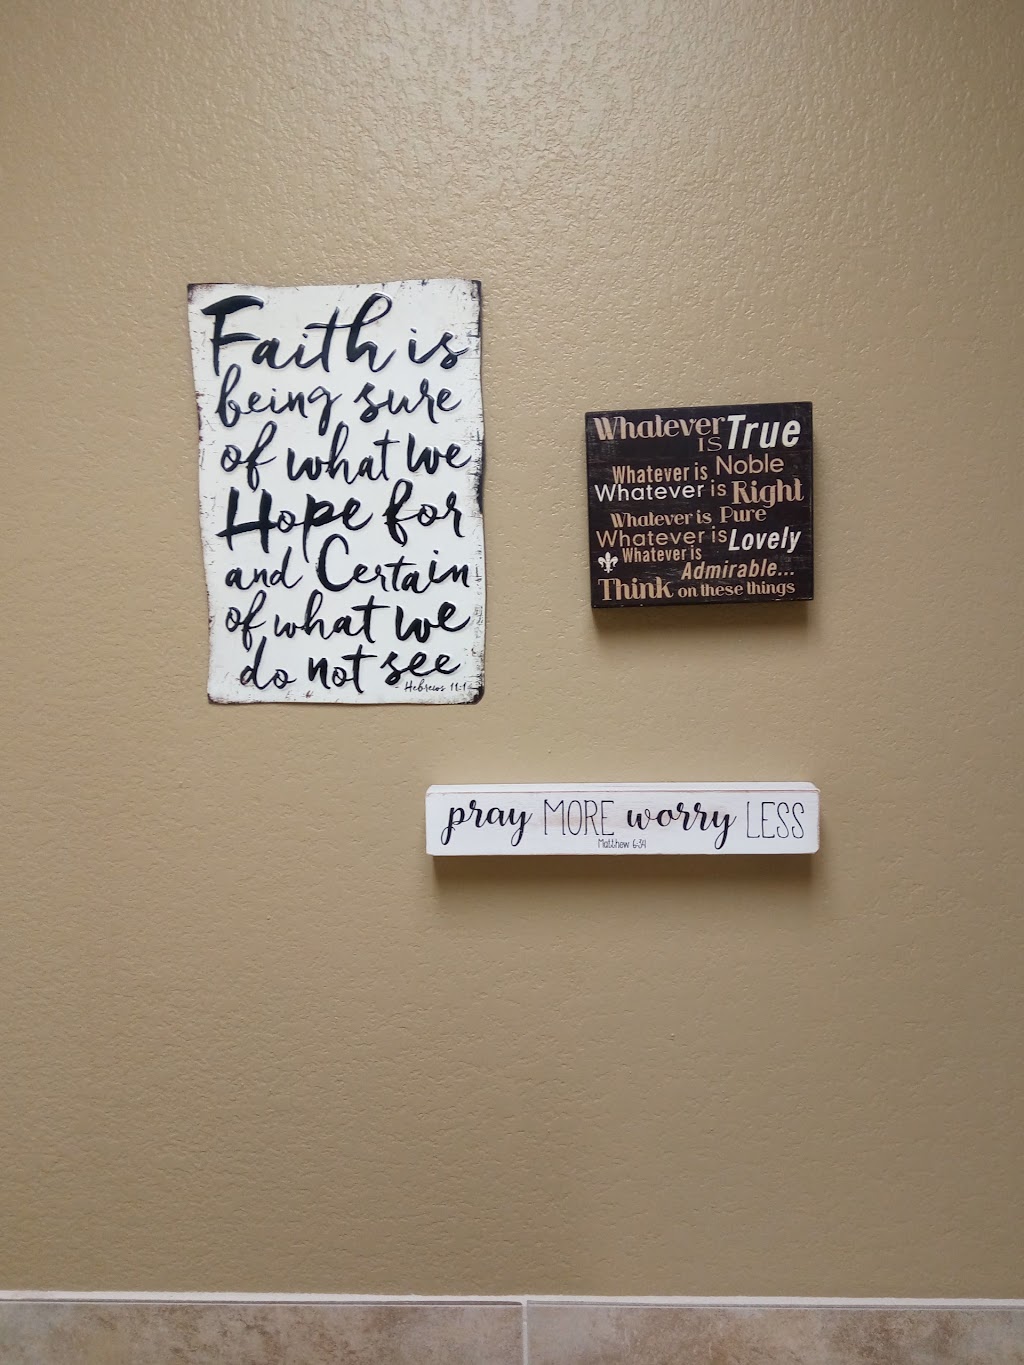 Faith is
being sure
of what we
Hope for
and Certain
of what we
do not see
- Hebrews 11:1
Whatever
IS True
Whatever is Noble
Whatever is Right
Whatever is Pure
Whatever is Lovely
Whatever is
Admirable...
Think on these things
pray MORE worry LESS
Matthew 6:34